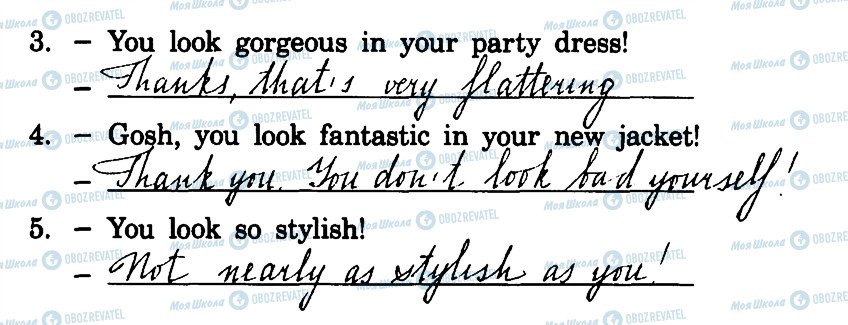 3. – You look gorgeous in your party dress!
– Thanks, that's very flattering
4. – Gosh, you look fantastic in your new jacket!
– Thank you. You don't look bad yourself!
5. – You look so stylish!
– Not nearly as stylish as you!